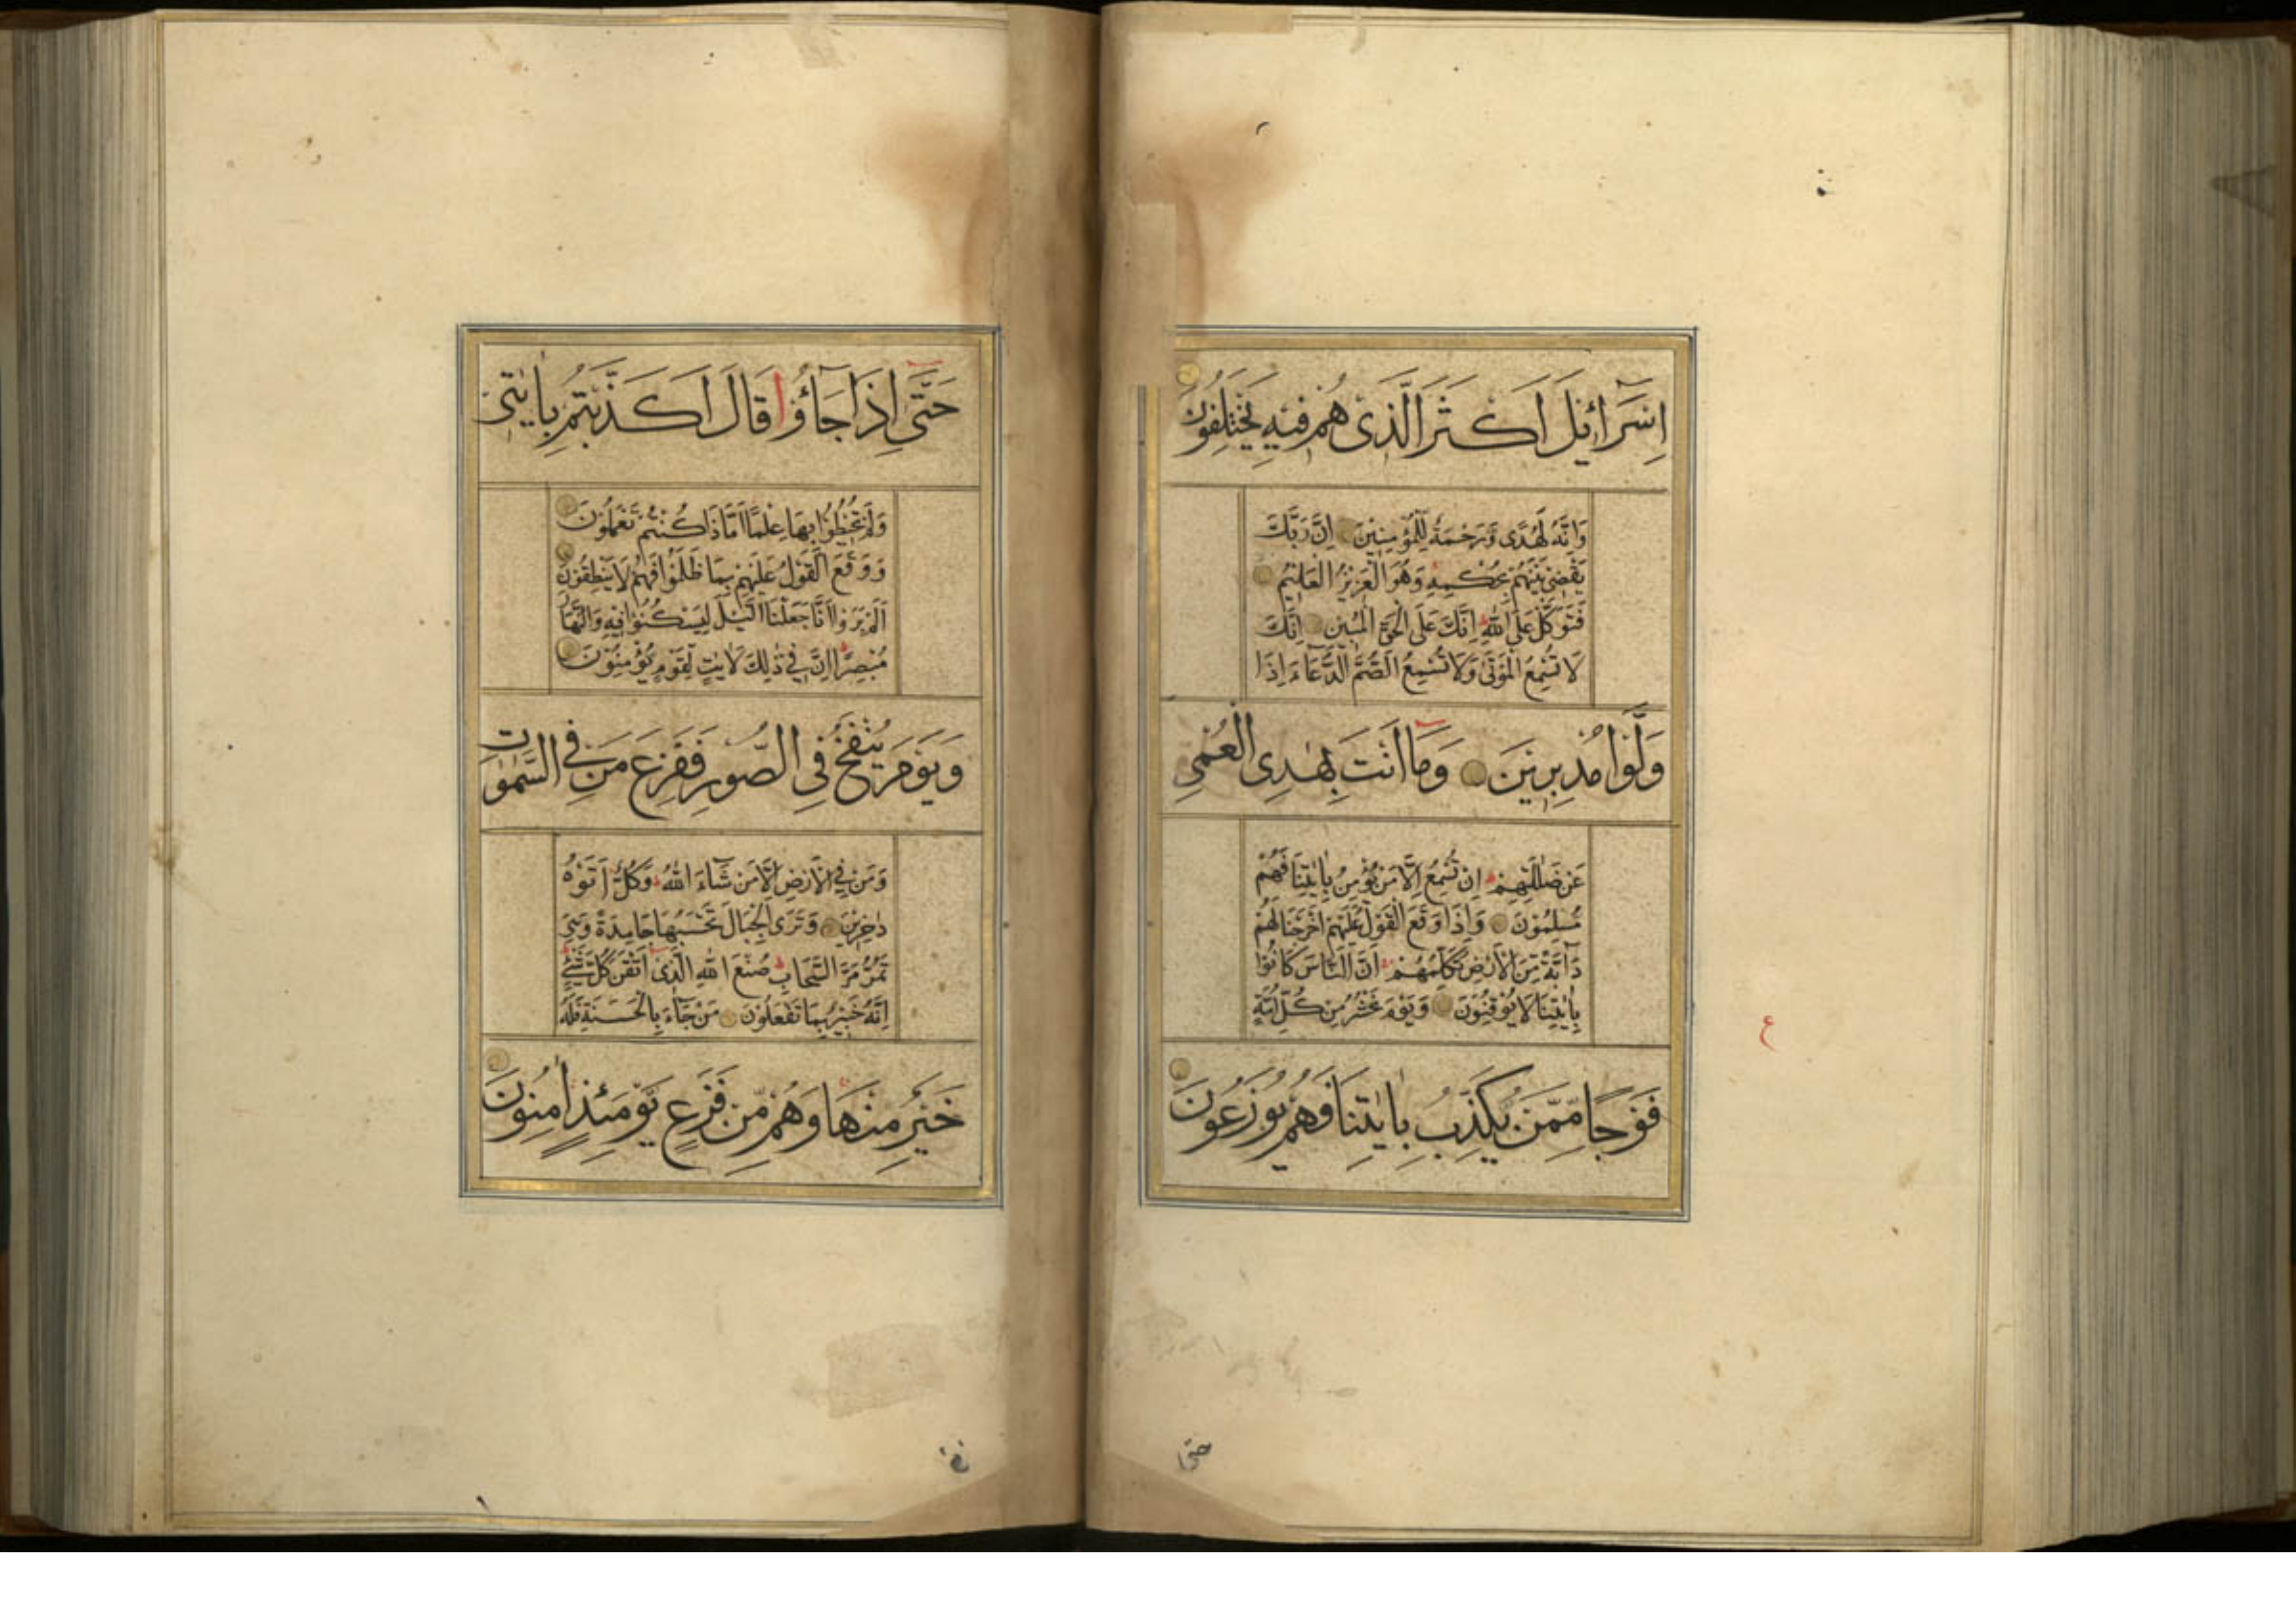 اِسْرَائِيلَ اَكْثَرَ الَّذِى هُمْ فِيهِ يَخْتَلِفُونَ
وَاِنَّهُ لَهُدًى وَرَحْمَةٌ لِلْمُؤْمِنِينَ اِنَّ رَبَّكَ
يَقْضِى بَيْنَهُمْ بِحُكْمِهِ وَهُوَ الْعَزِيزُ الْعَلِيمُ
فَتَوَكَّلْ عَلَى اللّٰهِ اِنَّكَ عَلَى الْحَقِّ الْمُبِينِ اِنَّكَ
لَا تُسْمِعُ الْمَوْتٰى وَلَا تُسْمِعُ الصُّمَّ الدُّعَاءَ اِذَا
وَلَّوْا مُدْبِرِينَ وَمَا اَنْتَ بِهٰدِى الْعُمْىِ
عَنْ ضَلٰلَتِهِمْ اِنْ تُسْمِعُ اِلَّا مَنْ يُؤْمِنُ بِاٰيٰتِنَا فَهُمْ
مُسْلِمُونَ وَاِذَا وَقَعَ الْقَوْلُ عَلَيْهِمْ اَخْرَجْنَا لَهُمْ
دَابَّةً مِنَ الْاَرْضِ تُكَلِّمُهُمْ اَنَّ النَّاسَ كَانُوا
بِاٰيٰتِنَا لَا يُوقِنُونَ وَيَوْمَ نَحْشُرُ مِنْ كُلِّ اُمَّةٍ
فَوْجًا مِمَّنْ يُكَذِّبُ بِاٰيٰتِنَا فَهُمْ يُوزَعُونَ
ع
حتى
حَتّٰى اِذَا جَاؤُا قَالَ اَكَذَّبْتُمْ بِاٰيٰتِى
وَلَمْ تُحِيطُوا بِهَا عِلْمًا اَمَّاذَا كُنْتُمْ تَعْمَلُونَ
وَوَقَعَ الْقَوْلُ عَلَيْهِمْ بِمَا ظَلَمُوا فَهُمْ لَا يَنْطِقُونَ
اَلَمْ يَرَوْا اَنَّا جَعَلْنَا الَّيْلَ لِيَسْكُنُوا فِيهِ وَالنَّهَارَ
مُبْصِرًا اِنَّ فِى ذٰلِكَ لَاٰيٰتٍ لِقَوْمٍ يُؤْمِنُونَ
وَيَوْمَ يُنْفَخُ فِى الصُّورِ فَفَزِعَ مَنْ فِى السَّمٰوٰتِ
وَمَنْ فِى الْاَرْضِ اِلَّا مَنْ شَاءَ اللّٰهُ وَكُلٌّ اَتَوْهُ
دٰخِرِينَ وَتَرَى الْجِبَالَ تَحْسَبُهَا جَامِدَةً وَهِىَ
تَمُرُّ مَرَّ السَّحَابِ صُنْعَ اللّٰهِ الَّذِى اَتْقَنَ كُلَّ شَىْءٍ
اِنَّهُ خَبِيرٌ بِمَا تَفْعَلُونَ مَنْ جَاءَ بِالْحَسَنَةِ فَلَهُ
خَيْرٌ مِنْهَا وَهُمْ مِنْ فَزَعٍ يَوْمَئِذٍ اٰمِنُونَ